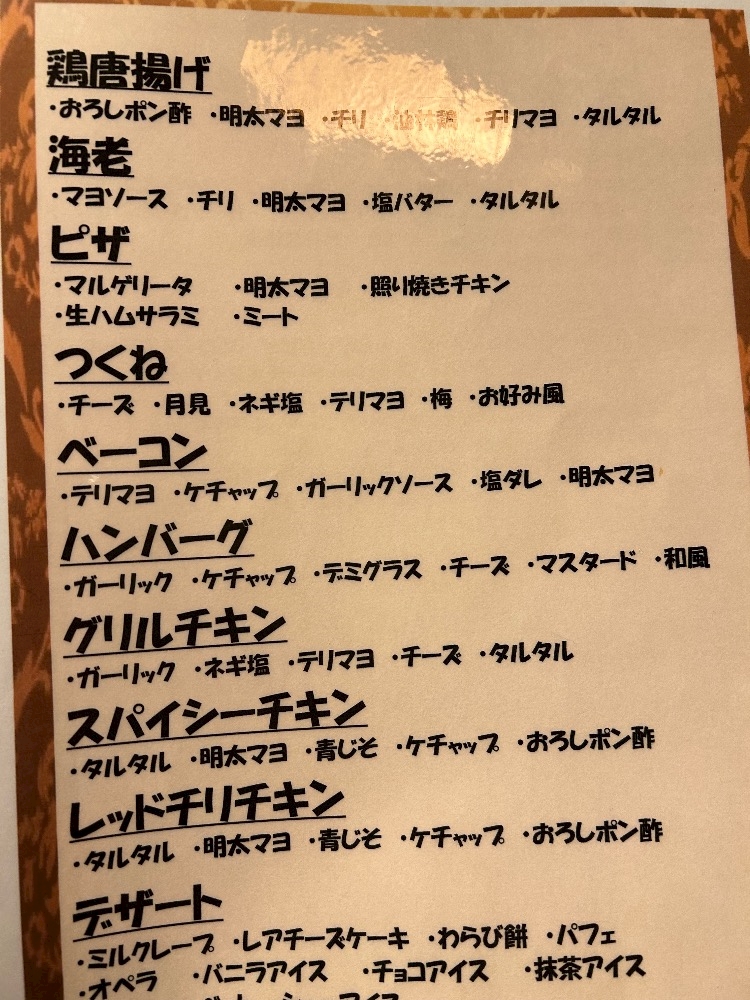 鶏唐揚げ
・おろしポン酢 ・明太マヨ ・チリ ・油淋鶏 ・チリマヨ ・タルタル
海老
・マヨソース ・チリ ・明太マヨ ・塩バター ・タルタル
ピザ
・マルゲリータ ・明太マヨ ・照り焼きチキン
・生ハムサラミ ・ミート
つくね
・チーズ ・月見 ・ネギ塩 ・テリマヨ ・梅 ・お好み風
ベーコン
・テリマヨ ・ケチャップ ・ガーリックソース ・塩ダレ ・明太マヨ
ハンバーグ
・ガーリック ・ケチャップ ・デミグラス ・チーズ ・マスタード ・和風
グリルチキン
・ガーリック ・ネギ塩 ・テリマヨ ・チーズ ・タルタル
スパイシーチキン
・タルタル ・明太マヨ ・青じそ ・ケチャップ ・おろしポン酢
レッドチリチキン
・タルタル ・明太マヨ ・青じそ ・ケチャップ ・おろしポン酢
デザート
・ミルクレープ ・レアチーズケーキ ・わらび餅 ・パフェ
・オペラ ・バニラアイス ・チョコアイス ・抹茶アイス